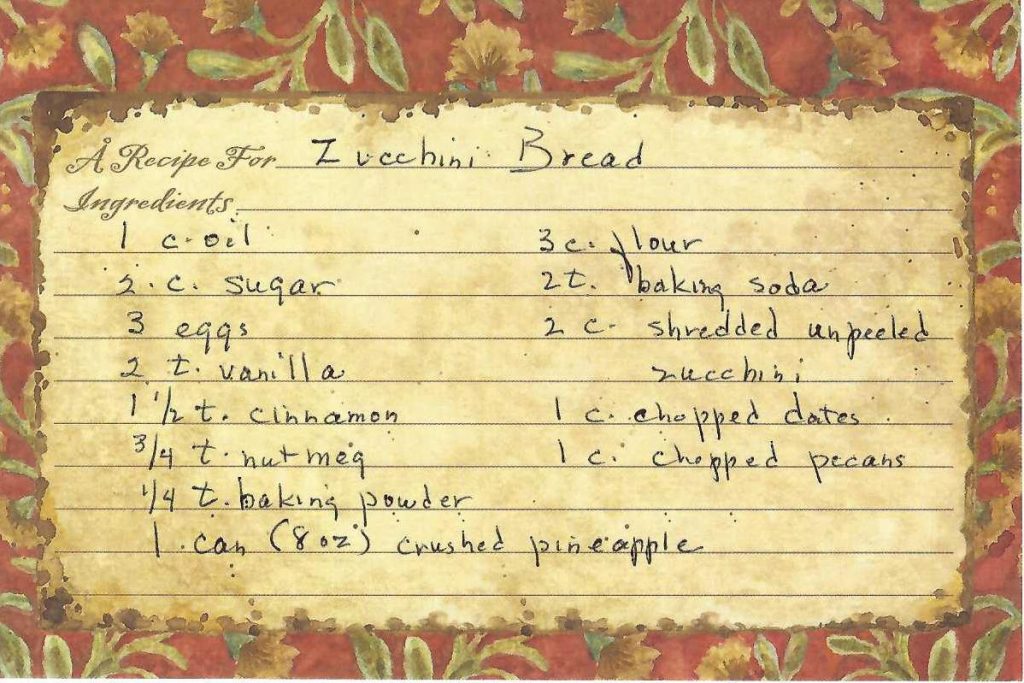 A Recipe For Zucchini Bread
Ingredients
1 c. oil
2. c. sugar
3 eggs
2 t. vanilla
1 1/2 t. cinnamon
3/4 t. nutmeg
1/4 t. baking powder
1 can (8 oz) crushed pineapple
3 c. flour
2 t. baking soda
2 c. shredded unpeeled
zucchini
1 c. chopped dates
1 c. chopped pecans